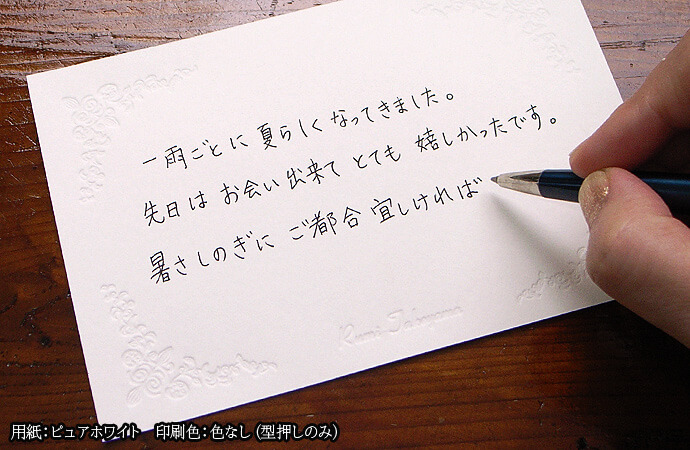 一雨ごとに 夏らしくなってきました。
先日は お会い出来て とても 嬉しかったです。
暑さしのぎに ご都合 宜しければ
Kumi Takayama
用紙：ピュアホワイト　印刷色：色なし（型押しのみ）